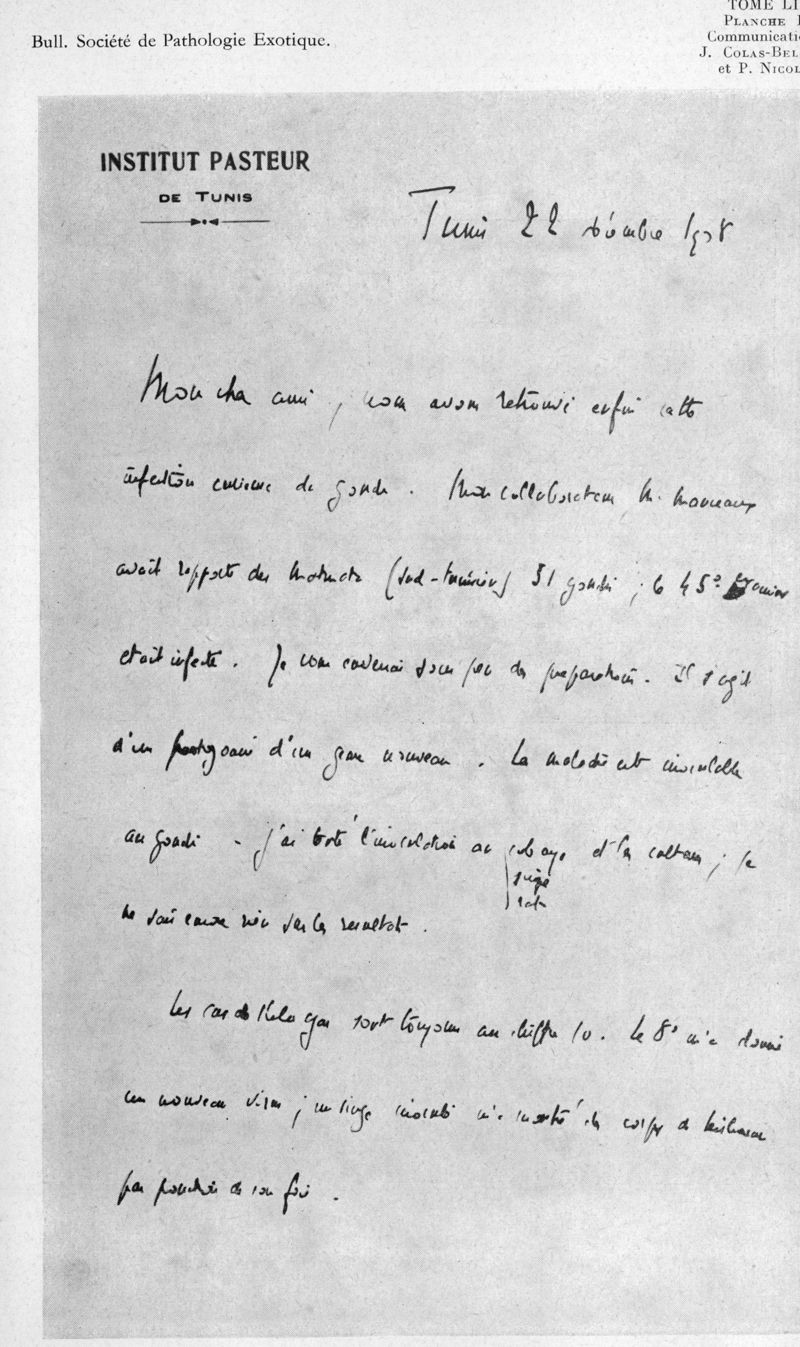 TOME LI
PLANCHE
Communicati
J. COLAS-BEL
et P. NICOL
Bull. Société de Pathologie Exotique.
INSTITUT PASTEUR
DE TUNIS
Tunis 22 décembre 1908
Mon cher ami, nous avons retrouvé enfin cette
infection curieuse du gondi. Mon collaborateur M. Manceaux
avait rapporté des Matmata (sud-tunisien) 51 gondis ; le 45e
était infecté. Je vous enverrai sous peu des préparations. Il s'agit
d'un protozoaire d'un genre nouveau. La maladie est inoculable
au gondi - j'ai tenté l'inoculation au cobaye et les cultures ; je
singe
rat
ne sais encore rien sur les résultats.
Les cas de Kala Azar sont toujours au chiffre 10. Le 8e m'a donné
un nouveau virus ; un singe inoculé m'a montré des corps de Leishman
par ponction de son foie.